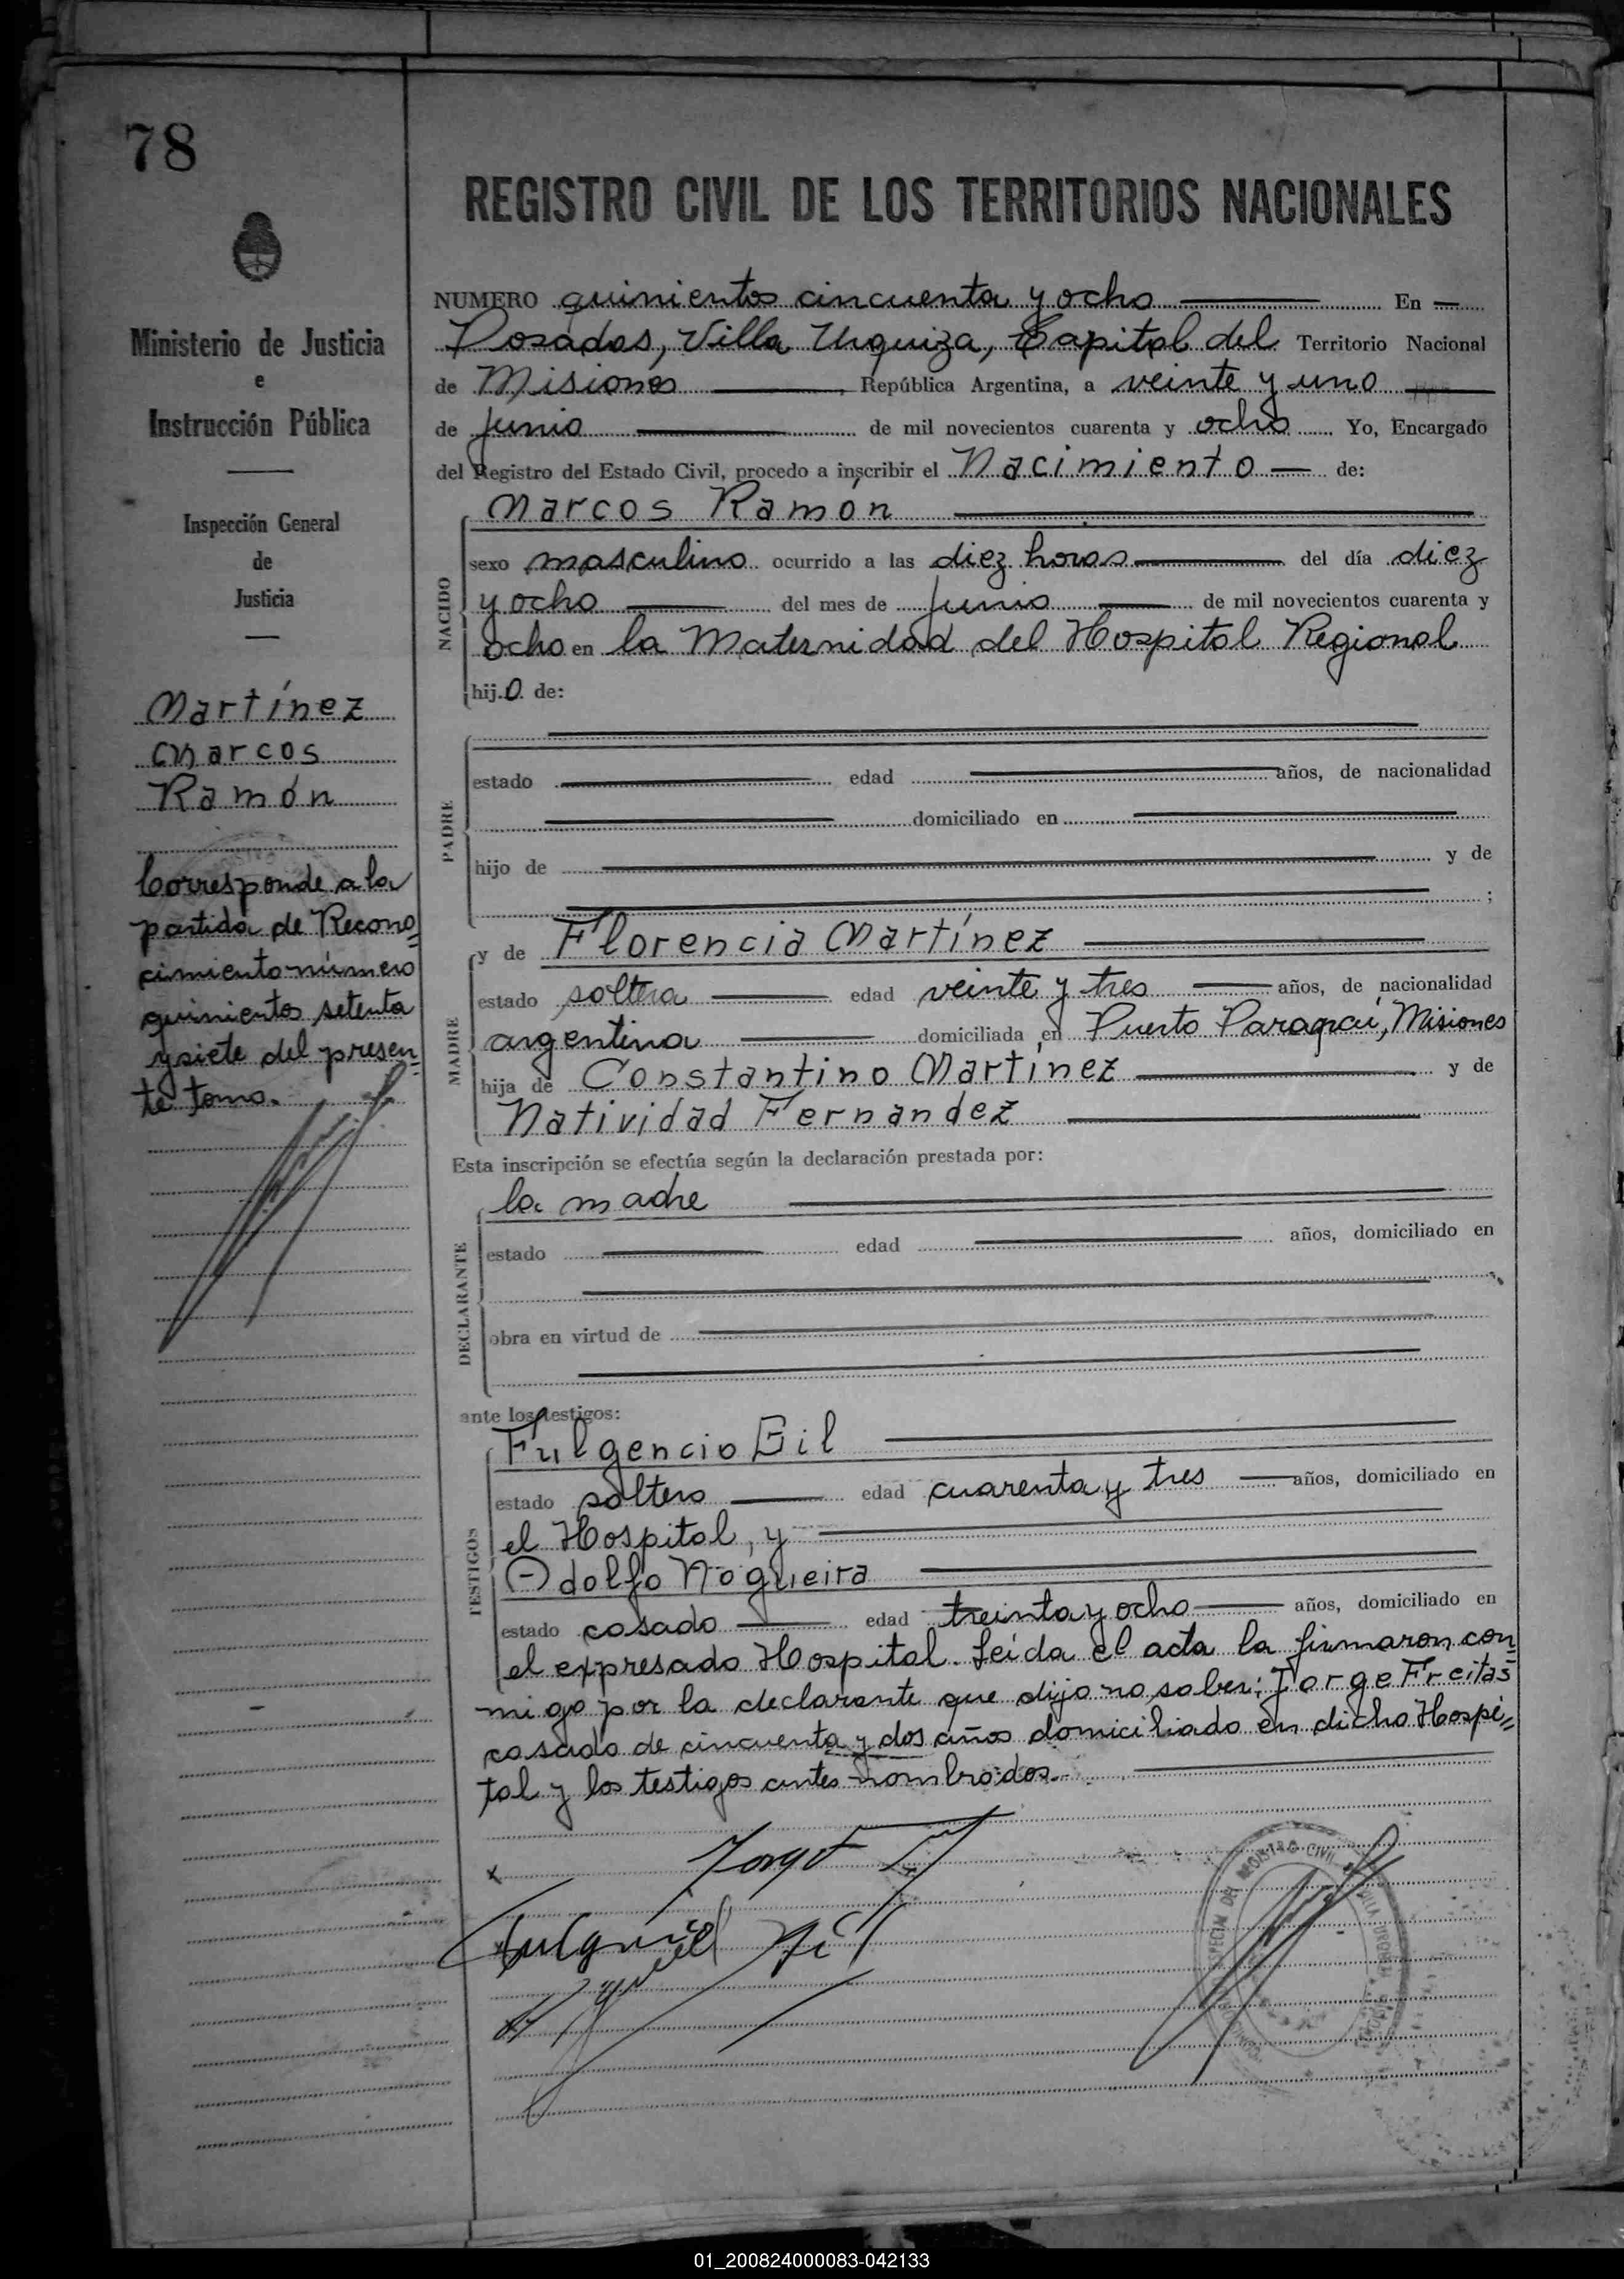 78
Ministerio de Justicia
e
Instrucción Pública
Inspección General
de
Justicia
Martínez
Marcos
Ramón
Corresponde a la
partida de Recono=
cimiento número
quinientos setenta
y siete del presen=
te tomo.
REGISTRO CIVIL DE LOS TERRITORIOS NACIONALES
NUMERO quinientos cincuenta y ocho En
Posadas, Villa Urquiza, Capital del Territorio Nacional
de Misiones República Argentina, a veinte y uno
de junio de mil novecientos cuarenta y ocho Yo, Encargado
del Registro del Estado Civil, procedo a inscribir el Nacimiento de:
NACIDO
Marcos Ramón
sexo masculino ocurrido a las diez horas del día diez
y ocho del mes de junio de mil novecientos cuarenta y
ocho en la Maternidad del Hospital Regional
hijo de:
PADRE
estado edad años, de nacionalidad
domiciliado en
hijo de y de
;
MADRE
y de Florencia Martínez
estado soltera edad veinte y tres años, de nacionalidad
argentina domiciliada en Puerto Paragcaí, Misiones
hija de Constantino Martínez y de
Natividad Fernandez
Esta inscripción se efectúa según la declaración prestada por:
DECLARANTE
la madre
estado edad años, domiciliado en
obra en virtud de
ante los testigos:
TESTIGOS
Fulgencio Gil
estado soltero edad cuarenta y tres años, domiciliado en
el Hospital, y
Adolfo Nogueira
estado casado edad treinta y ocho años, domiciliado en
el expresado Hospital. Leída el acta la firmaron con=
migo por la declarante que dijo no saber: Jorge Freitas
casado de cincuenta y dos años domiciliado en dicho Hospi=
tal y los testigos antes nombrados.
x Jorge F
Fulgencio Gil
REGISTRO CIVIL
01_200824000083-042133